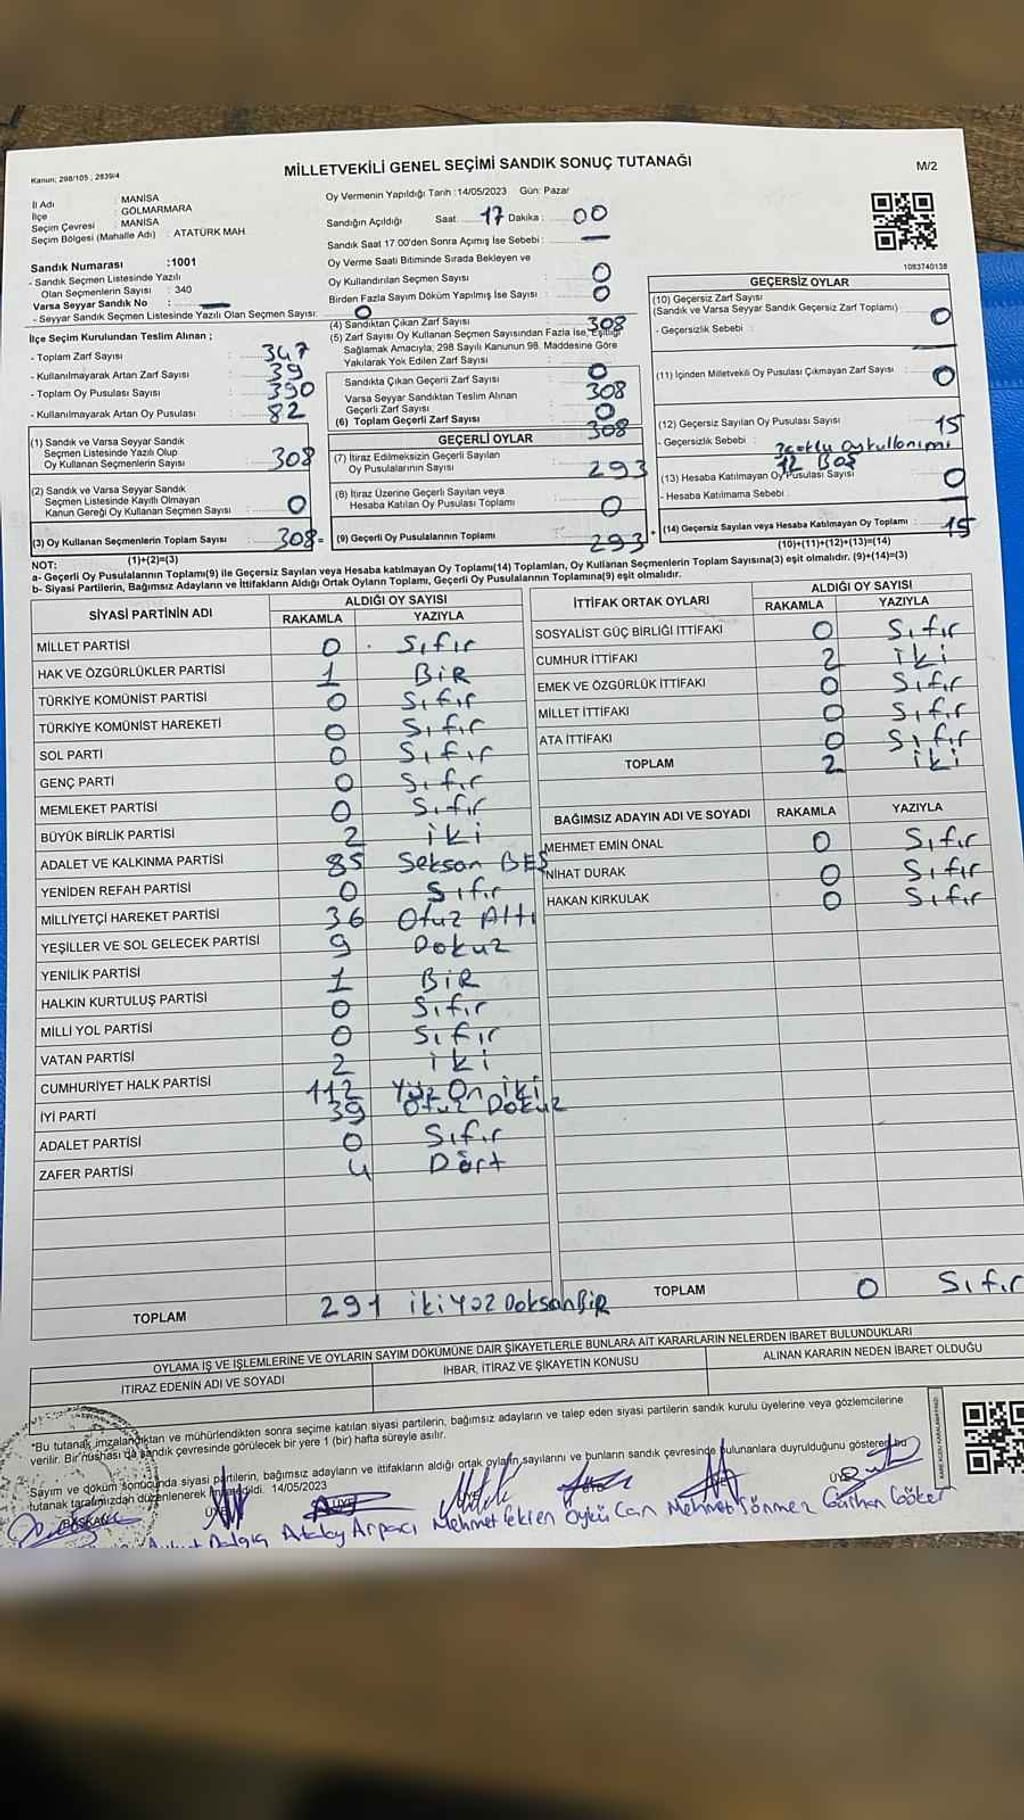 MİLLETVEKİLİ GENEL SEÇİMİ SANDIK SONUÇ TUTANAĞI
M/2
Kanun: 298/105 , 2839/4
İl Adı : MANİSA
İlçe : GÖLMARMARA
Seçim Çevresi : MANİSA
Seçim Bölgesi (Mahalle Adı) : ATATÜRK MAH
Oy Vermenin Yapıldığı Tarih :14/05/2023 Gün: Pazar
Sandığın Açıldığı Saat : 17 Dakika : 00
Sandık Saat 17 00'den Sonra Açımış İse Sebebi : —
Oy Verme Saati Bitiminde Sırada Bekleyen ve
Oy Kullandırılan Seçmen Sayısı : 0
Birden Fazla Sayım Döküm Yapılmış İse Sayısı : 0
1083740138
Sandık Numarası :1001
- Sandık Seçmen Listesinde Yazılı
Olan Seçmenlerin Sayısı : 340
Varsa Seyyar Sandık No : —
- Seyyar Sandık Seçmen Listesinde Yazılı Olan Seçmen Sayısı: 0
İlçe Seçim Kurulundan Teslim Alınan ;
- Toplam Zarf Sayısı : 347
- Kullanılmayarak Artan Zarf Sayısı : 39
- Toplam Oy Pusulası Sayısı : 390
- Kullanılmayarak Artan Oy Pusulası : 82
(1) Sandık ve Varsa Seyyar Sandık
Seçmen Listesinde Yazılı Olup
Oy Kullanan Seçmenlerin Sayısı : 308
(2) Sandık ve Varsa Seyyar Sandık
Seçmen Listesinde Kayıtlı Olmayan
Kanun Gereği Oy Kullanan Seçmen Sayısı : 0
(3) Oy Kullanan Seçmenlerin Toplam Sayısı : 308=
(1)+(2)=(3)
(4) Sandıktan Çıkan Zarf Sayısı 308
(5) Zarf Sayısı Oy Kullanan Seçmen Sayısından Fazla İse, Eşitliği
Sağlamak Amacıyla, 298 Sayılı Kanunun 98. Maddesine Göre
Yakılarak Yok Edilen Zarf Sayısı : 0
Sandıkta Çıkan Geçerli Zarf Sayısı : 308
Varsa Seyyar Sandıktan Teslim Alınan
Geçerli Zarf Sayısı : 0
(6) Toplam Geçerli Zarf Sayısı : 308
GEÇERLİ OYLAR
(7) İtiraz Edilmeksizin Geçerli Sayılan
Oy Pusulalarının Sayısı : 293
(8) İtiraz Üzerine Geçerli Sayılan veya
Hesaba Katılan Oy Pusulası Toplamı : 0
(9) Geçerli Oy Pusulalarının Toplamı 293 +
GEÇERSİZ OYLAR
(10) Geçersiz Zarf Sayısı
(Sandık ve Varsa Seyyar Sandık Geçersiz Zarf Toplamı) : 0
- Geçersizlik Sebebi : —
(11) İçinden Milletvekili Oy Pusulası Çıkmayan Zarf Sayısı : 0
(12) Geçersiz Sayılan Oy Pusulası Sayısı 15
- Geçersizlik Sebebi : 3 çoklu oy kullanımı
12 Boş
(13) Hesaba Katılmayan Oy Pusulası Sayısı : 0
- Hesaba Katılmama Sebebi : —
(14) Geçersiz Sayılan veya Hesaba Katılmayan Oy Toplamı : 15
(10)+(11)+(12)+(13)=(14)
NOT:
a- Geçerli Oy Pusulalarının Toplamı(9) ile Geçersiz Sayılan veya Hesaba katılmayan Oy Toplamı(14) Toplamları, Oy Kullanan Seçmenlerin Toplam Sayısına(3) eşit olmalıdır. (9)+(14)=(3)
b- Siyasi Partilerin, Bağımsız Adayların ve İttifakların Aldığı Ortak Oyların Toplamı, Geçerli Oy Pusulalarının Toplamına(9) eşit olmalıdır.
SİYASİ PARTİNİN ADI ALDIĞI OY SAYISI
RAKAMLA YAZIYLA
MİLLET PARTİSİ 0 Sıfır
HAK VE ÖZGÜRLÜKLER PARTİSİ 1 BİR
TÜRKİYE KOMÜNİST PARTİSİ 0 Sıfır
TÜRKİYE KOMÜNİST HAREKETİ 0 Sıfır
SOL PARTİ 0 Sıfır
GENÇ PARTİ 0 Sıfır
MEMLEKET PARTİSİ 0 Sıfır
BÜYÜK BİRLİK PARTİSİ 2 iki
ADALET VE KALKINMA PARTİSİ 85 Seksan BEŞ
YENİDEN REFAH PARTİSİ 0 Sıfır
MİLLİYETÇİ HAREKET PARTİSİ 36 Otuz Altı
YEŞİLLER VE SOL GELECEK PARTİSİ 9 Dokuz
YENİLİK PARTİSİ 1 BİR
HALKIN KURTULUŞ PARTİSİ 0 Sıfır
MİLLİ YOL PARTİSİ 0 Sıfır
VATAN PARTİSİ 2 iki
CUMHURİYET HALK PARTİSİ 112 Yüz On iki
İYİ PARTİ 39 Otuz Dokuz
ADALET PARTİSİ 0 Sıfır
ZAFER PARTİSİ 4 Dört
TOPLAM 291 ikiyüz Doksan BİR
İTTİFAK ORTAK OYLARI ALDIĞI OY SAYISI
RAKAMLA YAZIYLA
SOSYALİST GÜÇ BİRLİĞİ İTTİFAKI 0 Sıfır
CUMHUR İTTİFAKI 2 iki
EMEK VE ÖZGÜRLÜK İTTİFAKI 0 Sıfır
MİLLET İTTİFAKI 0 Sıfır
ATA İTTİFAKI 0 Sıfır
TOPLAM 2 iki
BAĞIMSIZ ADAYIN ADI VE SOYADI RAKAMLA YAZIYLA
MEHMET EMİN ÖNAL 0 Sıfır
NİHAT DURAK 0 Sıfır
HAKAN KIRKULAK 0 Sıfır
TOPLAM 0 Sıfır
OYLAMA İŞ VE İŞLEMLERİNE VE OYLARIN SAYIM DÖKÜMÜNE DAİR ŞİKAYETLERLE BUNLARA AİT KARARLARIN NELERDEN İBARET BULUNDUKLARI
İTİRAZ EDENİN ADI VE SOYADI İHBAR, İTİRAZ VE ŞİKAYETİN KONUSU ALINAN KARARIN NEDEN İBARET OLDUĞU
"Bu tutanak imzalandıktan ve mühürlendikten sonra seçime katılan siyasi partilerin, bağımsız adayların ve talep eden siyasi partilerin sandık kurulu üyelerine veya gözlemcilerine
verilir. Bir nüshası da sandık çevresinde görülecek bir yere 1 (bir) hafta süreyle asılır.
Sayım ve döküm sonucunda siyasi partilerin, bağımsız adayların ve ittifakların aldığı ortak oyların sayılarını ve bunların sandık çevresinde bulunanlara duyrulduğunu gösteren bu
tutanak tarafımızdan düzenlenerek imzalandı. 14/05/2023
BAŞKAN ÜYE ÜYE ÜYE ÜYE ÜYE
Atabay Arpacı Mehmet Tekten Öykü Can Mehmet Sönmez Gürhan Göker